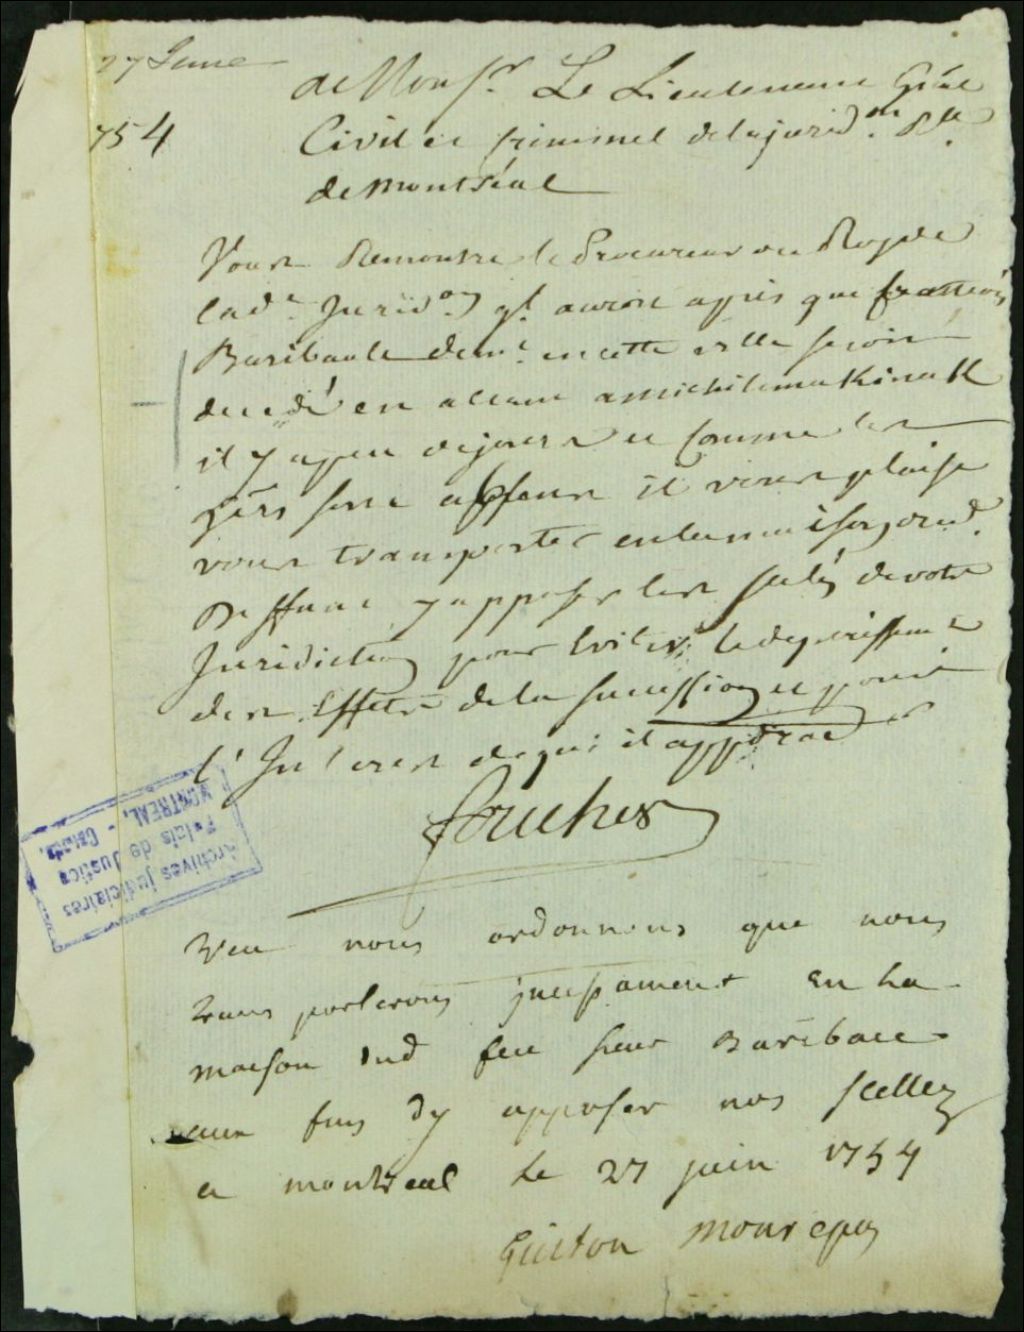 27 Juine
1754
A Monsr. Le Lieutenant Gnal
Civil et Criminel de la jurid.on R.lle
de Montréal
Vous Remontre le Procureur du Roy de
lad.e Jurid.on q'l auroit apris que
Baribault dem.t en cette ville seroit
decedé en allant a michilimakinak
il y a peu de jours et Comme les
gers sont absens il vous plaise
vous transporter en la maison dud.
Deffunt y apposer les scelés de votre
Juridiction pour Eviter le deperissem.t
des Effets de la succession et pour
l'Interest de qui il appdra
Foucher
Veu nous ordonnons que nous
transporterons incessament En La
maison dud feu sieur Baribace
aux fins dy apposer nos scellez
a montreal le 27 juin 1754
Guiton Monrepos
Archives judiciaires
Palais de Justice
MONTREAL, - Canada.